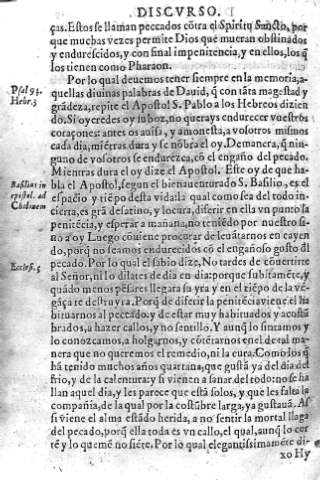 DISCVRSO.
ças. Estos se llaman peccados cõtra el Spiritu Sancto, por
que muchas vezes permite Dios que mueran obstinados
y endurescidos, y con final impenitencia, y en ellos, los q̃
los tienen como Pharaon.
Por lo qual deuemos tener siempre en la memoria, a-
Psal 94.
Hebr. 3
quellas diuinas palabras de Dauid, q̃ con tãta magestad y
grãdeza, repite el Apostol S. Pablo a los Hebreos dizien
do. Si oyeredes oy su boz, no querays endurecer vuestros
coraçones: antes os auisa, y amonesta, a vosotros mismos
cada dia, miẽtras dura y se nõbra el oy. Demanera, q̃ nin-
guno de vosotros se endurezca, cõ el engaño del pecado.
Mientras dura el oy dize el Apostol. Este oy de que ha-
Basilius in
epistol. ad
bla el Apostol, segun el bienauenturado S. Basilio, es el
espacio y tiẽpo desta vida: la qual como sea del todo in-
cierta, es grã desatino, y locura, diferir en ella vn punto la
penitẽcia, y esperar a mañana, no teniẽdo por nuestro si-
no a oy Luego cõuiene procurar de leuãtarnos en cayen
do, porq̃ no seamos endurecidos cõ el engañoso gusto dl
Eccles. 5
pecado. Por lo qual el sabio dize, No tardes de cõuertirte
al Señor, ni lo dilates de dia en dia: porque subitamẽte, y
quãdo menos pẽsares llegara su yra y en el tiẽpo de la vẽ-
gãça te destruyra. Porq̃ de diferir la penitẽcia viene el ha
bituarnos al peccado, y de estar muy habituados y acostũ
brados, a hazer callos, y no sentillo. Y aunq̃ lo sintamos y
lo conozcamos, a holgarnos, y cõtẽtarnos en el de tal ma
nera que no queremos el remedio, ni la cura. Como los q̃
hã tenido muchos años quartana, que gustã ya del dia del
frio, y de la calentura: y si vienen a sanar del todo: no se ha
llan aquel dia, y les parece que estã solos, y que les falta la
compañia, de la qual por la costũbre larga, ya gustauã. As
si viene el alma estãdo herida, a no sentir la mortal llaga
del pecado, porq̃ ella toda es vn callo, el qual, aunq̃ lo cor
tẽ y lo quemẽ no siẽte. Por lo qual elegantissimamẽte di-
xo Hy